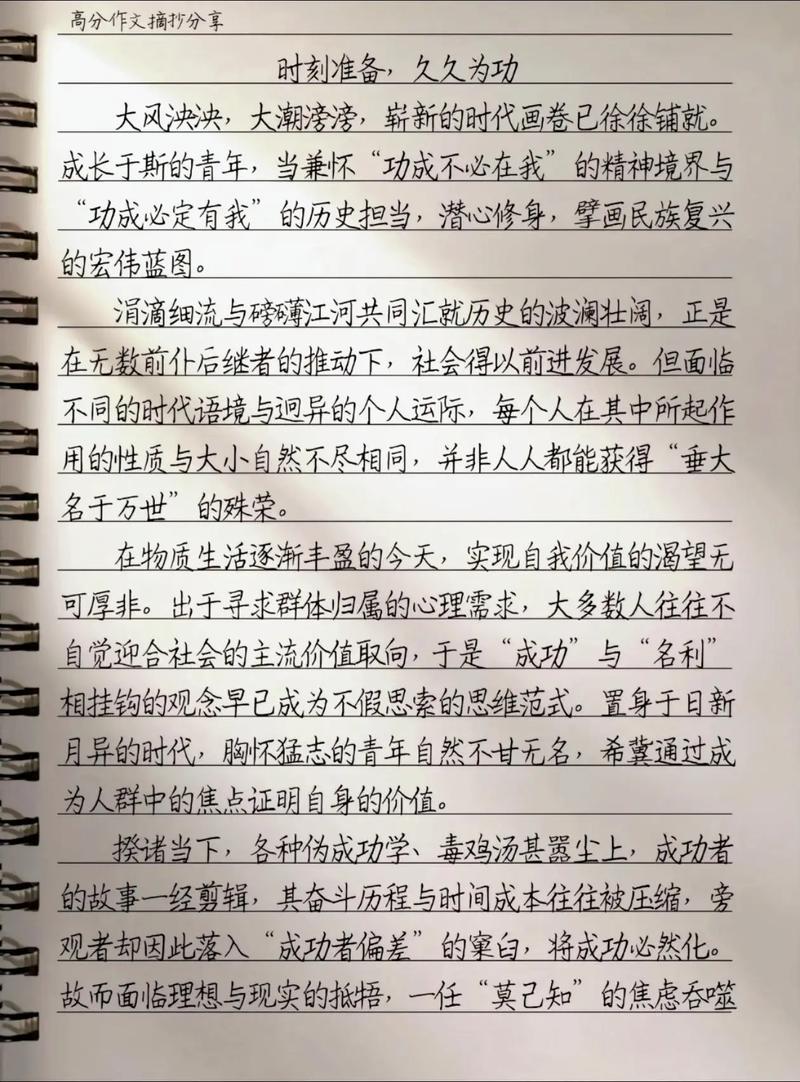 高分作文摘抄分享
时刻准备，久久为功
大风泱泱，大潮滂滂，崭新的时代画卷已徐徐铺就。
成长于斯的青年，当兼怀“功成不必在我”的精神境界与
“功成必定有我”的历史担当，潜心修身，擘画民族复兴
的宏伟蓝图。
涓滴细流与磅礴江河共同汇就历史的波澜壮阔，正是
在无数前仆后继者的推动下，社会得以前进发展。但面临
不同的时代语境与迥异的个人运际，每个人在其中所起作
用的性质与大小自然不尽相同，并非人人都能获得“垂大
名于万世”的殊荣。
在物质生活逐渐丰盈的今天，实现自我价值的渴望无
可厚非。出于寻求群体归属的心理需求，大多数人往往不
自觉迎合社会的主流价值取向，于是“成功”与“名利”
相挂钩的观念早已成为不假思索的思维范式。置身于日新
月异的时代，胸怀猛志的青年自然不甘无名，希冀通过成
为人群中的焦点证明自身的价值。
揆诸当下，各种伪成功学、毒鸡汤甚嚣尘上，成功者
的故事一经剪辑，其奋斗历程与时间成本往往被压缩，旁
观者却因此落入“成功者偏差”的窠臼，将成功必然化。
故而面临理想与现实的抵牾，一任“莫己知”的焦虑吞噬